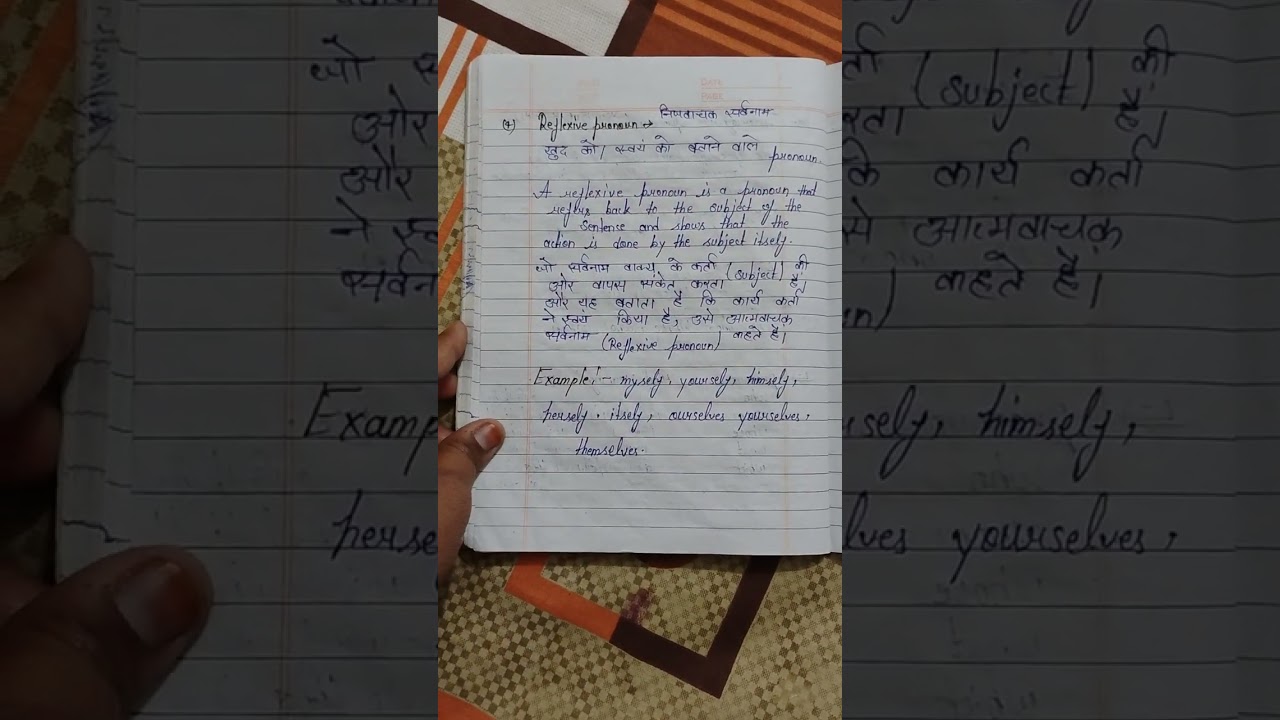 DATE
PAGE
(4) Reflexive pronoun → निजवाचक सर्वनाम
खुद को / स्वयं को बताने वाले pronoun
A reflexive pronoun is a pronoun that
refers back to the subject of the
Sentence and shows that the
action is done by the subject itself.
जो सर्वनाम वाक्य के कर्ता (subject) की
ओर वापस संकेत करता है।
और यह बताता है कि कार्य कर्ता
ने स्वयं किया है, उसे आत्मवाचक
सर्वनाम (Reflexive pronoun) कहते हैं।
Example:- myself, yourself, himself,
herself, itself, ourselves yourselves,
themselves.